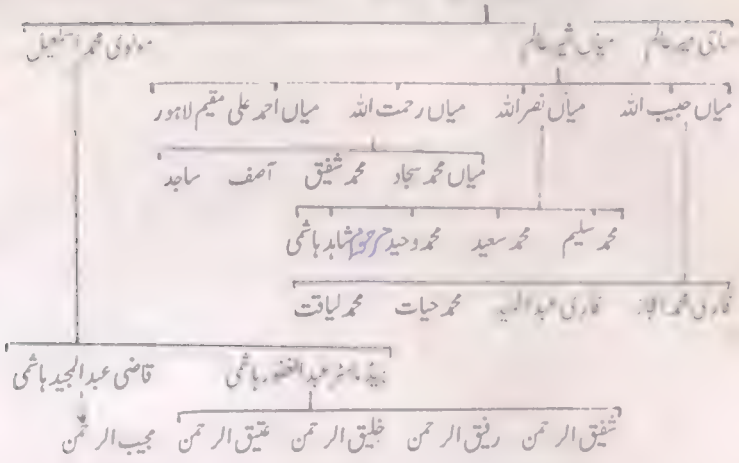 حاجی میر عالم میاں شیر عالم مولوی محمد اسمٰعیل
میاں حبیب اللہ میاں نصر اللہ میاں رحمت اللہ میاں احمد علی مقیم لاہور
میاں محمد سجاد محمد شفیق آصف ساجد
محمد سلیم محمد سعید محمد وحید مرحوم شاہد ہاشمی
قاری محمد قاری عبد محمد حیات محمد لیاقت
ہیڈ ماسٹر عبدالغفور ہاشمی قاضی عبدالمجید ہاشمی
شفیق الرحمن رفیق الرحمن خلیق الرحمن عتیق الرحمن مجیب الرحمن